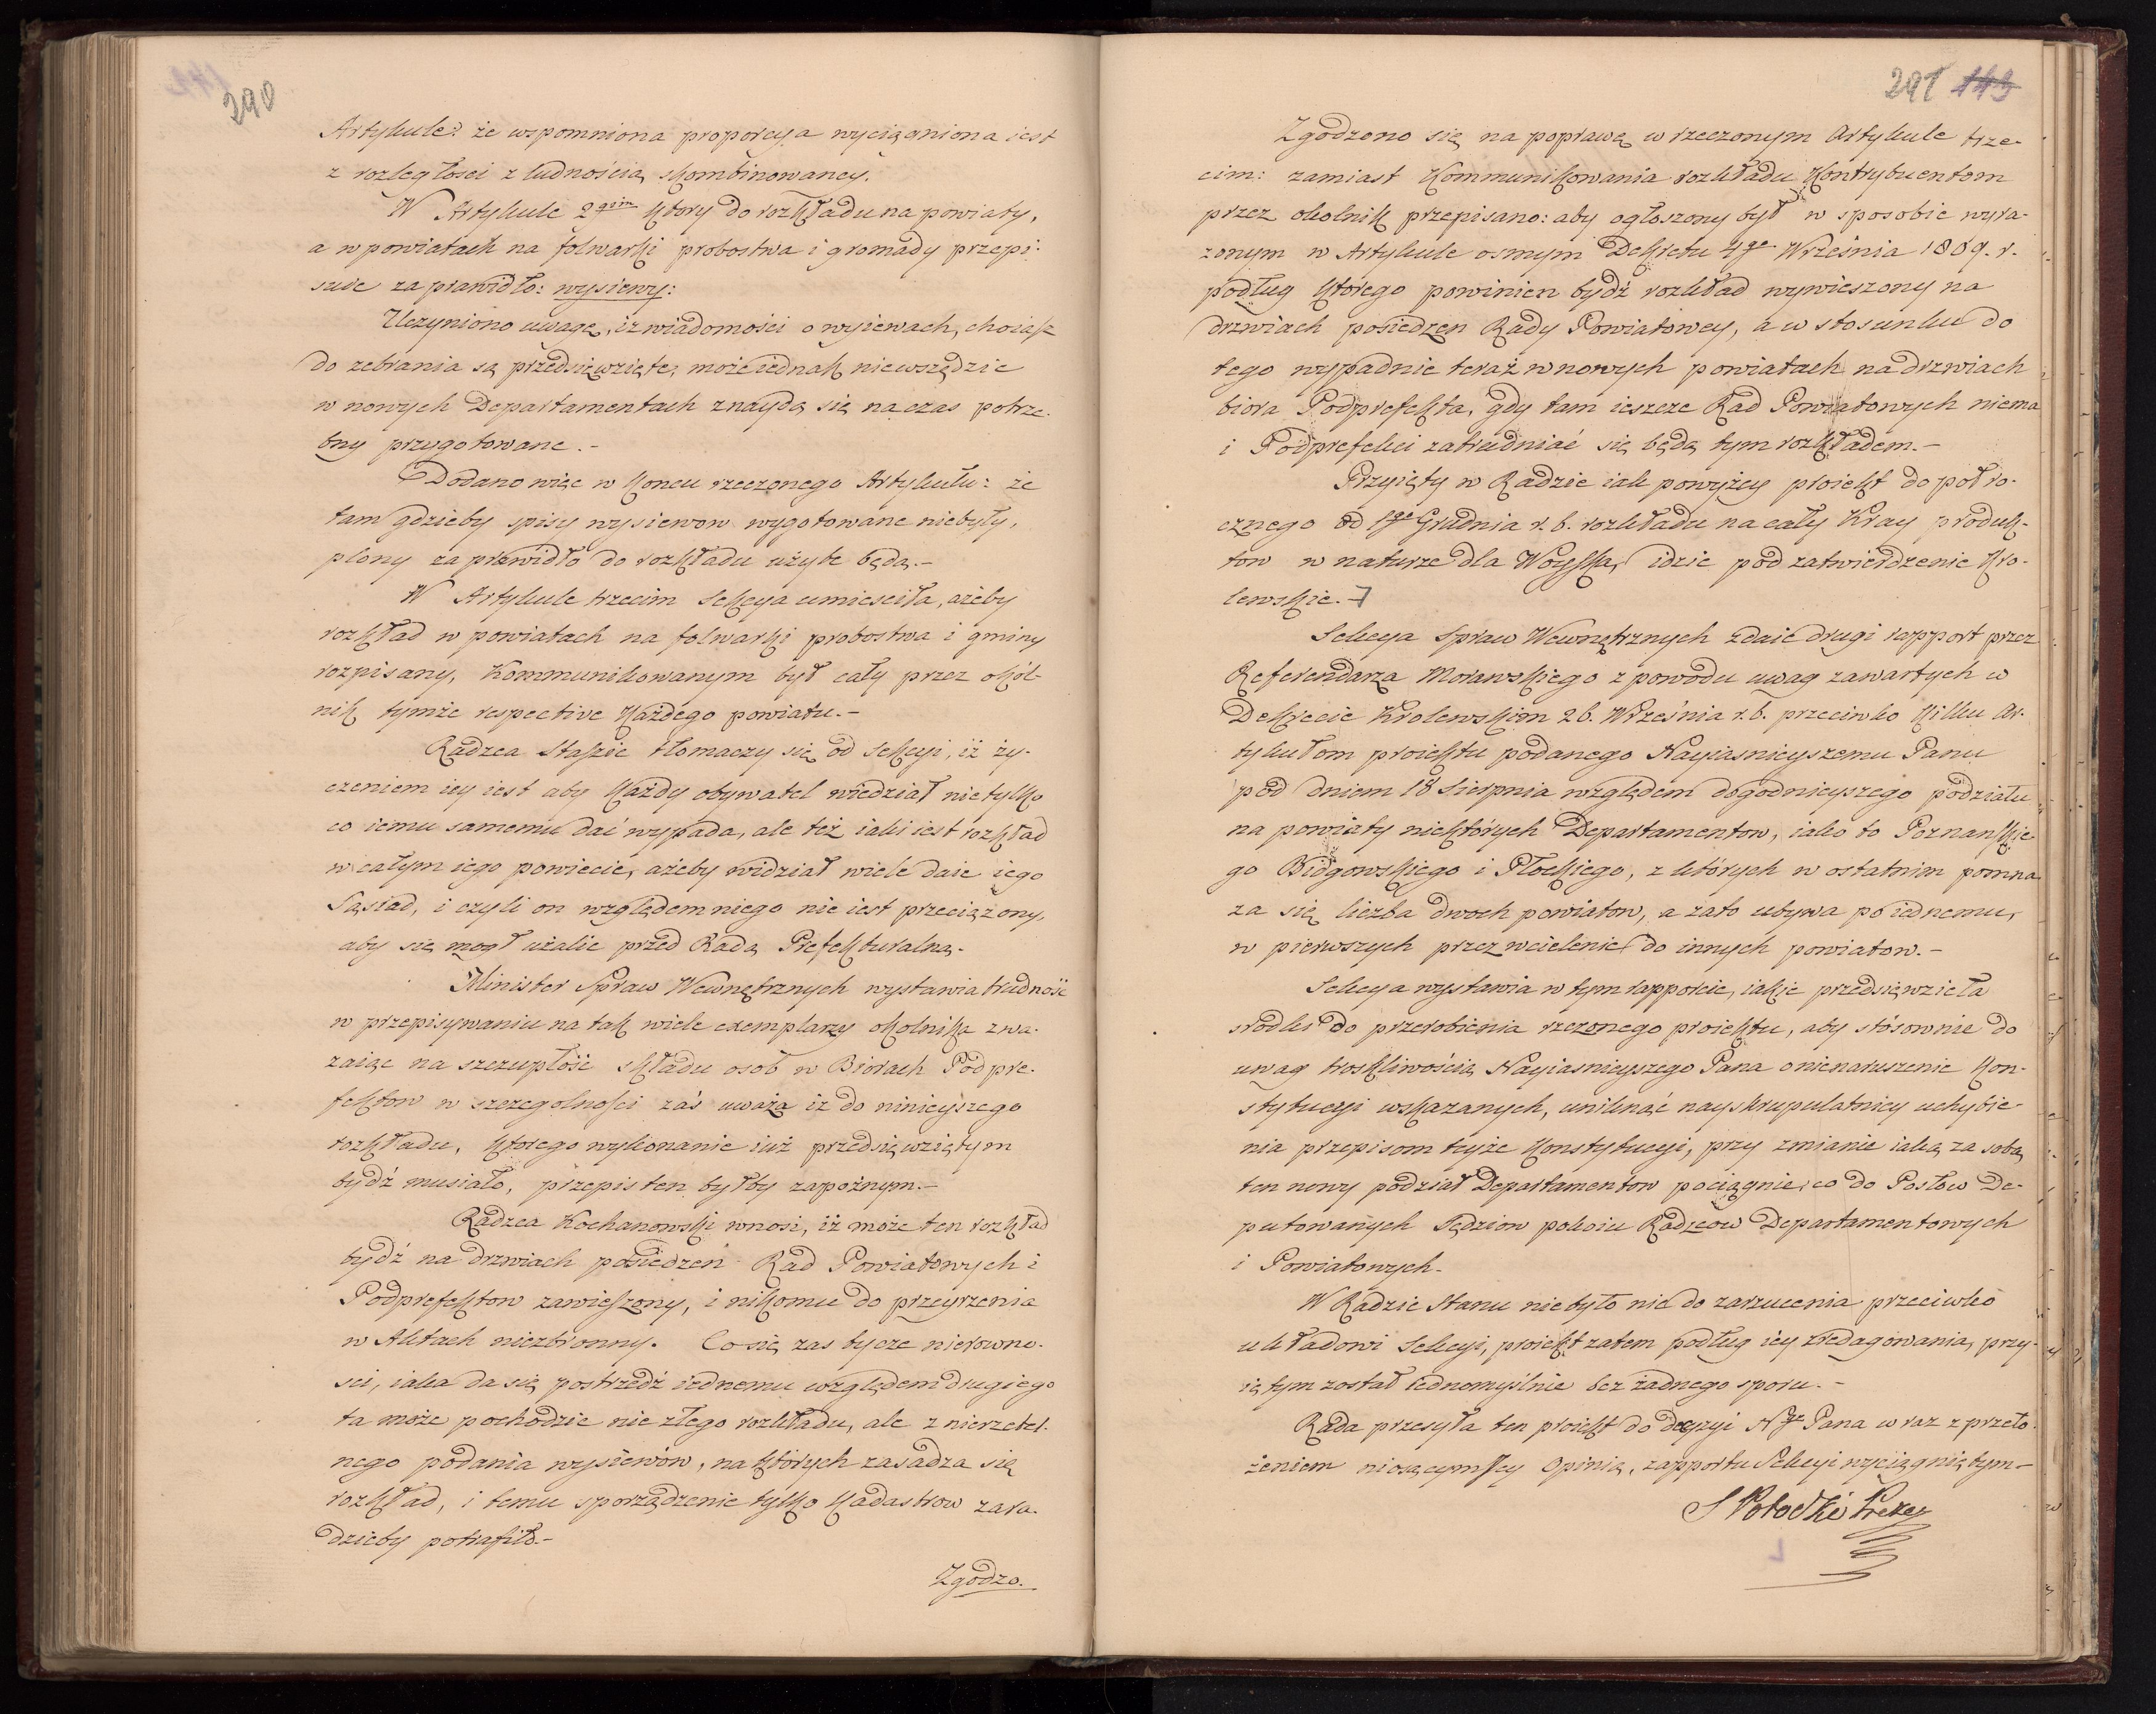 290
Artykule: że wspomniona proporcya wyciągniona iest
z rozległości z ludnością skombinowaney.
W Artykule 2gim ktory do rozkładu na powiaty,
a w powiatach na folwarki probostwa i gromady przepi-
suie za prawidło: wysiewy:
Uczyniono uwagę, iż wiadomości o wysiewach, choiasz
do zebrania są przedsięwzięte, może iednak niewszędzie
w nowych Departamentach znaydą się na czas potrze-
bny przygotowane.-
Dodano więc w koncu rzeczonego Artykułu: że
tam gdzieby spisy wysiewow wygotowane niebyły,
plony za prawidło do rozkładu użyte będą.-
W Artykule trzecim Sekcya umiesciła, ażeby
rozkład w powiatach na folwarki probostwa i gminy
rozpisany, Kommunikowanym był cały przez okól-
nik tymże respective każdego powiatu.-
Radzca Staszic tłomaczy się od Sekcyi, iż ży-
czeniem iey iest aby każdy obywatel wiedział nietylko
co iemu samemu dać wypada, ale też iaki iest rozkład
w całym iego powiecie, ażeby widział wiele daie iego
Sąsiad, i czyli on względem niego nie iest przeciążony,
aby się mogł użalic przed Radą Prefekturalną.-
Minister Spraw Wewnętrznych wystawia trudność
w przepisywaniu na tak wiele exemplarzy okolnika zwa-
zaiąc na szczupłość składu osob w Biorach Podpre-
fektow w szczegolności zaś uważa iz do ninieyszego
rozkładu, ktorego wykonanie iuż przedsięwziętym
bydź musiało, przepis ten byłby zapożnym.-
Radzca Kochanowski wnosi, iż może ten rozkład
bydź na drzwiach posiedzeń Rad Powiatowych i
Podprefektow zawieszony, i nikomu do przeyrzenia
w Aktach niezbronny. Co się zas tycze nierowno-
sci, iaka da się postrzedź iednemu względem drugiego
ta może pochodzic nie złego rozkładu, ale z nierzetel-
nego podania wysiewów, na których zasadza się
rozkład, i temu sporządzenie tylko kadastrow zara-
dzieby potrafiło.-
Zgodzo.
291 143
Zgodzono się na poprawę w rzeczonym Artykule trze-
cim: zamiast Kommunikowania rozkładu Kontrybuentom
przez okolnik przepisano: aby ogłoszony był w sposobie wyra-
zonym w Artykule osmym Dekretu 4go Września 1809. r.
podług ktorego powinien bydź rozkład wywieszony na
drzwiach posiedzen Rady Powiatowey, a w stosunku do
tego wypadnie teraż w nowych powiatach na drzwiach
biora Podprefekta, gdy tam ieszcze Rad Powiatowych niema
i Podprefekci zatrudniać się będą tym rozkładem.-
Przyięty w Radzie iak powyżey proiekt do poł ro-
cznego od 1go Grudnia r. b. rozkładu na cały Kray produk-
tow w naturze dla Woyska, idzie pod zatwierdzenie Kro-
lewskie.-
Sekcya Spraw Wewnętrznych zdaie drugi rapport przez
Referendarza Morawskiego z powodu uwag zawartych w
Dekrecie Krolewskim 26. Września r. b. przeciwko kilku Ar-
tykułom proiektu podanego Nayiasnieyszemu Panu
pod dniem 18 Sierpnia względem dogodnieyszego podziału
na powiaty niektórych Departamentow, iako to Poznanskie-
go Bidgowskiego i Płockiego, z których w ostatnim pomna-
za się liczba dwoch powiatow, a zato ubywa po iednemu,
w pierwszych przez wcielenie do innych powiatow.-
Sekcya wystawia w tym rapporcie, iakie przedsięwzieła
srodki do przerobienia rzeczonego proiektu, aby stósownie do
uwag troskliwością Nayiasnieyszego Pana o nienaruszenie Kon-
stytucyi wskazanych, uniknąć nayskrupulatniey uchybie-
nia przepisom teyże Konstytucyi, przy zmianie iaką za sobą
ten nowy podział Departamentow pociągnie, co do Posłow De-
putowanych Sędziow pokoiu Radzcow Departamentowych
i Powiatowych.-
W Radzie Stanu niebyło nic do zarzucenia przeciwko
układowi Sekcyi, proiekt zatem podług iey zredagowania, przy-
iętym został iednomyślnie bez żadnego sporu.-
Rada przesyła ten proiekt do decyzyi Ngo Pana wraz z przeło-
żeniem niosącym Jey Opinią, z rapportu Sekcyi wyciągniętym-
S Potocki Prezes